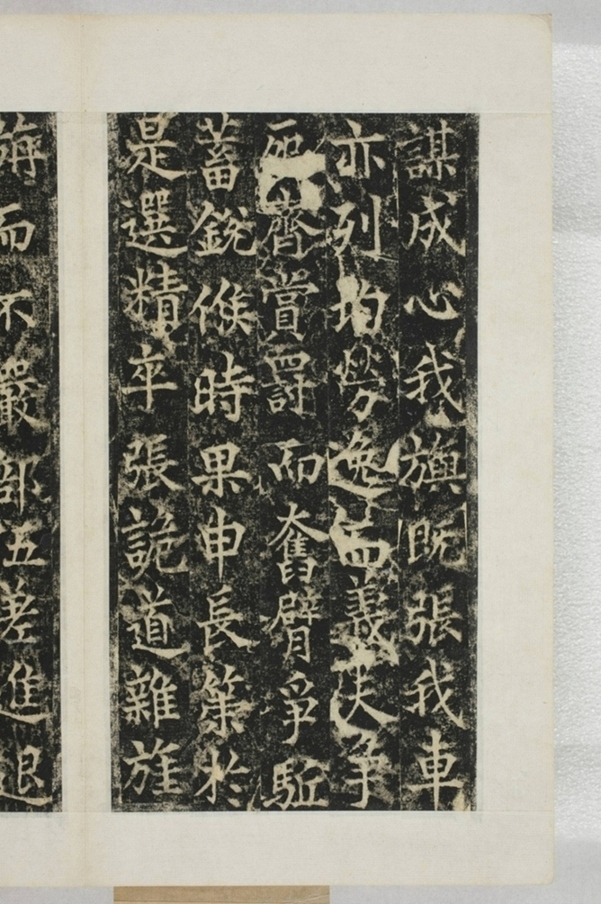 謀成心我旗既張我車
亦列均勞逸而義夫爭
齊賞罸而奮臂爭駈
蓄銳候時果申長策於
是選精卒張詭道雜旌
旆而不嚴部伍差進退